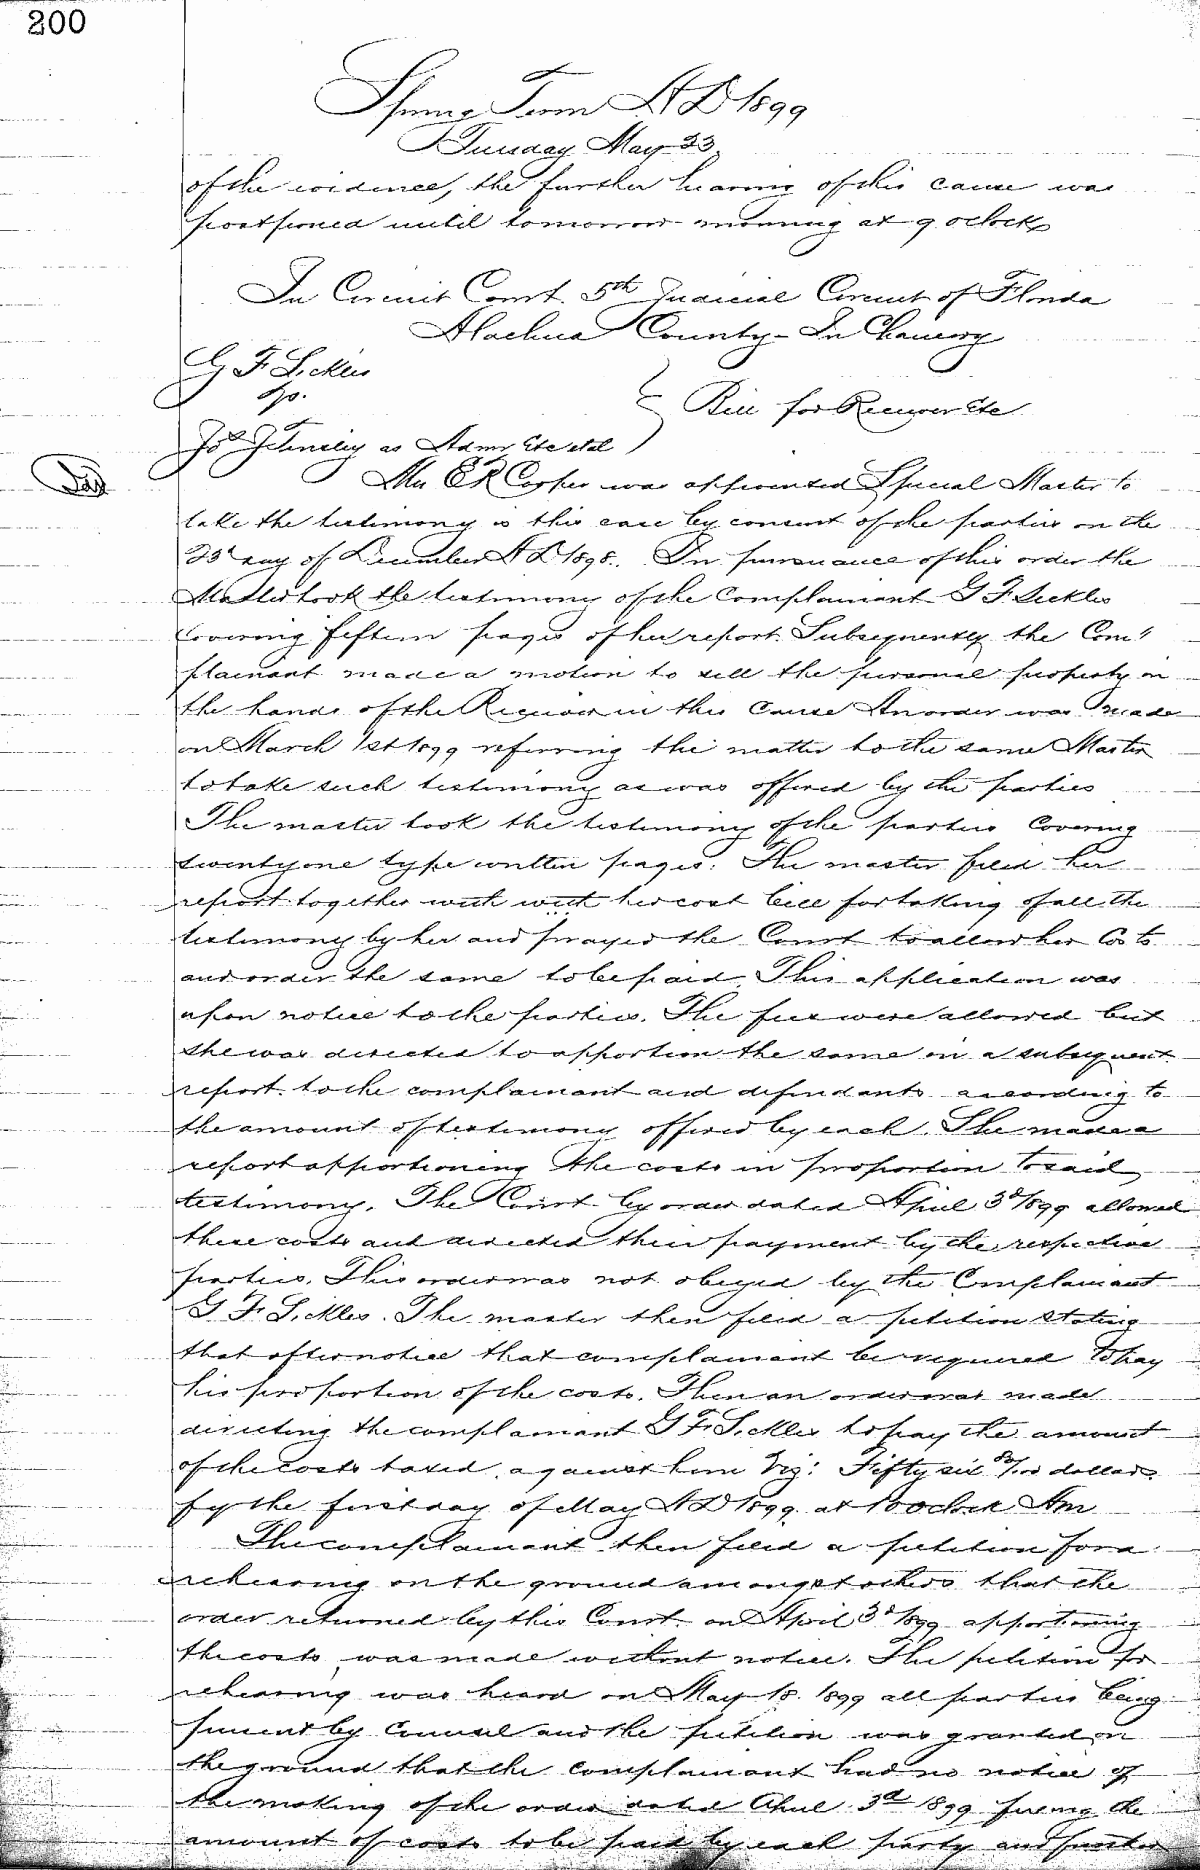 200
Spring Term A D 1899
Tuesday May 23
of the evidence, the further hearing of this cause was
postponed until tomorrow morning at 9 oclock
In Circuit Court 5th Judicial Circuit of Florida
Alachua County - In Chancery
G F Sickles
vs.
Bill for Receiver Etc
Jos Tinsley as Admr Etc et al
Mrs E R Cooper was appointed Special Master to
take the testimony in this case by consent of the parties on the
23d day of December A D 1898. In pursuance of this order the
Master took the testimony of the Complainant G F Sickles
covering fifteen pages of her report. Subsequently the Com"
plainant made a motion to sell the personal property in
the hands of the Receiver in this Cause An order was made
on March 1st 1899 referring the matter to the same Master
to take such testimony as was offered by the parties
The master took the testimony of the parties Covering
twenty one type written pages. The master filed her
report together with with her cost bill for taking of all the
testimony by her and prayed the Court to allow her Costs
and order the same to be paid. This application was
upon notice to the parties. The fees were allowed but
she was directed to apportion the same in a subsequent
report to the complainant and defendants according to
the amount of testimony offered by each. She made a
report apportioning the costs in proportion to said
testimony. The Court by order dated April 3d 1899 allowed
these costs and directed their payment by the respective
parties. This order was not obeyed by the Complainant
G F Sickles. The master then filed a petition stating
that after notice that complainant be required to pay
his proportion of the costs. Then an order was made
directing the complainant G F Sickles to pay the amount
of the costs taxed against him Viz: Fifty six /100 dollars
by the first day of May A D 1899 at 10 oclock Am
The complainant then filed a petition for a
rehearing on the ground amongst others that the
order returned by this Court on April 3d 1899 apportioning
the costs was made without notice. The petition for
rehearing was heard on May 18. 1899 all parties being
present by Counsel and the petition was granted on
the ground that the complainant had no notice of
the making of the order dated April 3rd 1899 fixing the
amount of costs to be paid by each party and further